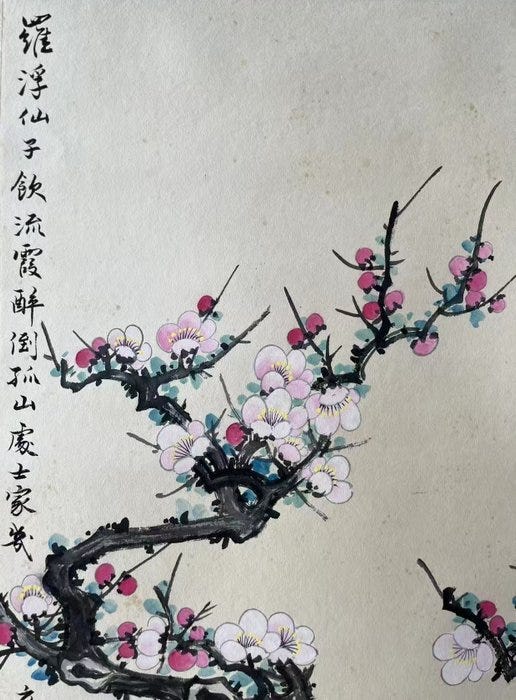 羅浮仙子飲流霞醉倒孤山處士家幾